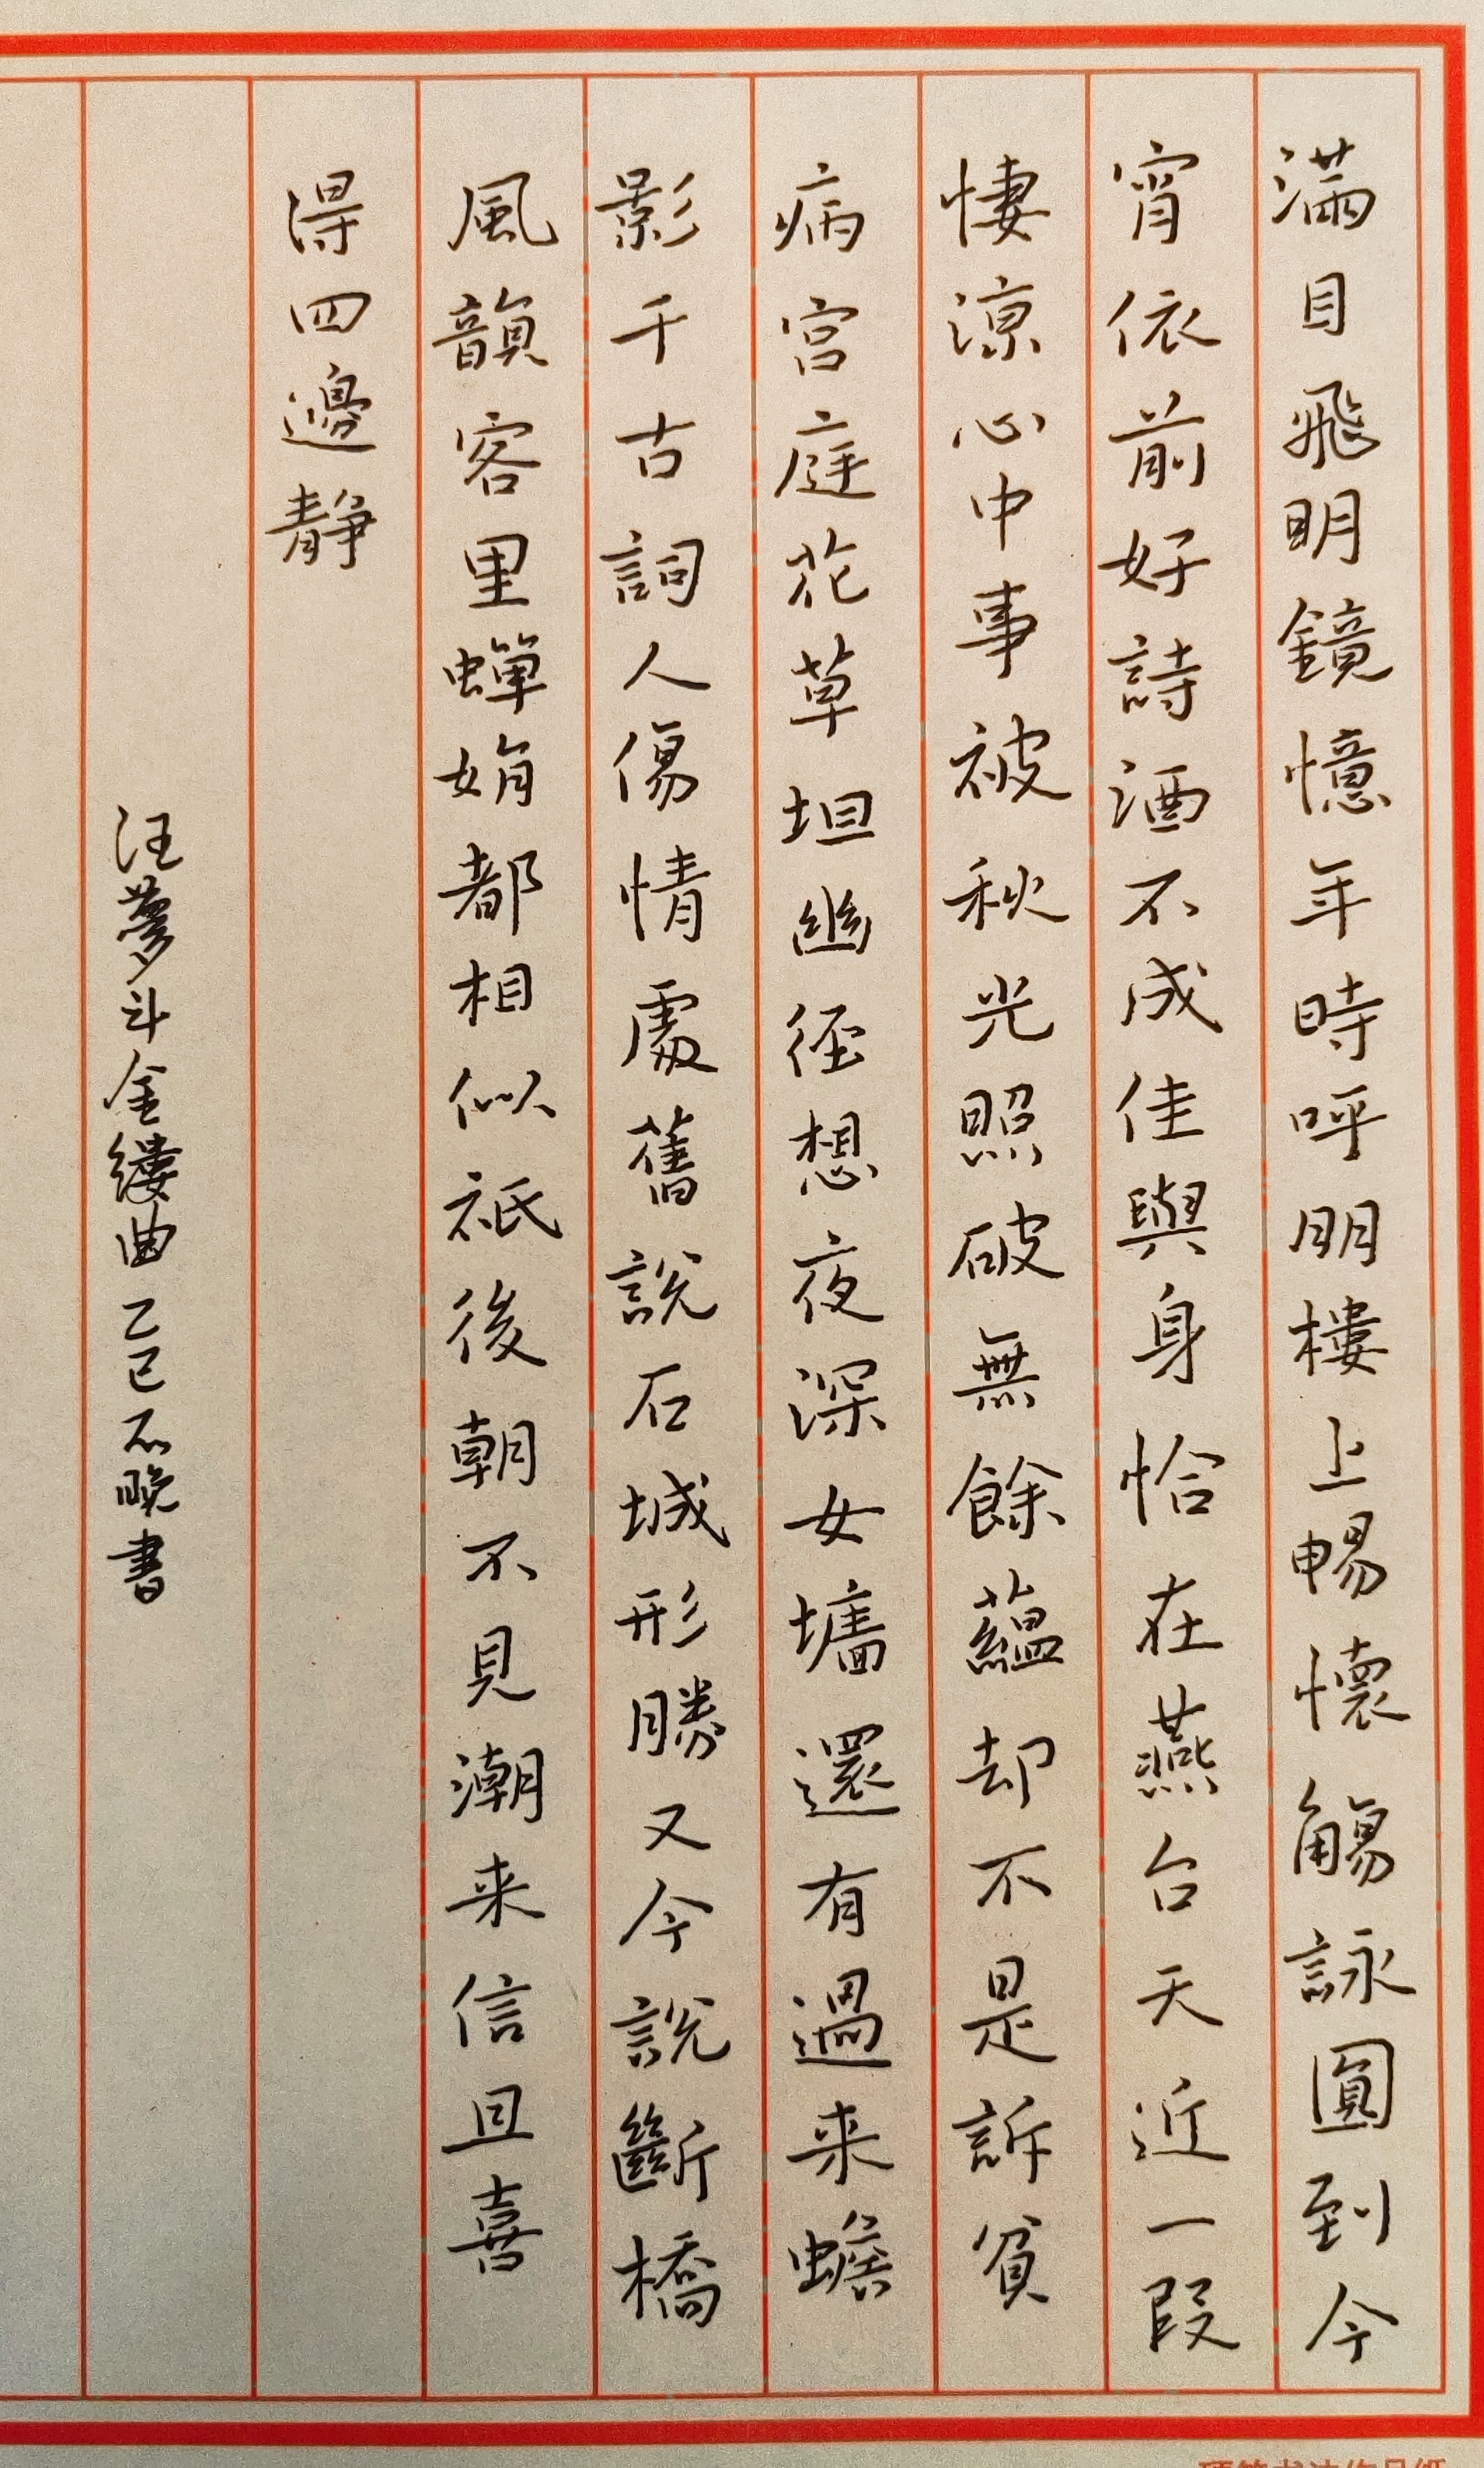 滿目飛明鏡憶年時呼朋樓上暢懷觴詠圓到今
宵依前好詩酒不成佳興身恰在燕台天近一段
悽涼心中事被秋光照破無餘蘊却不是訴貧
病宮庭花草埋幽徑想夜深女墻還有過来蟾
影千古詞人傷情處舊說石城形勝又今說斷橋
風韻客里蟬娟都相似祇後朝不見潮来信且喜
得四邊静
汪夢斗金縷曲乙巳不晚書